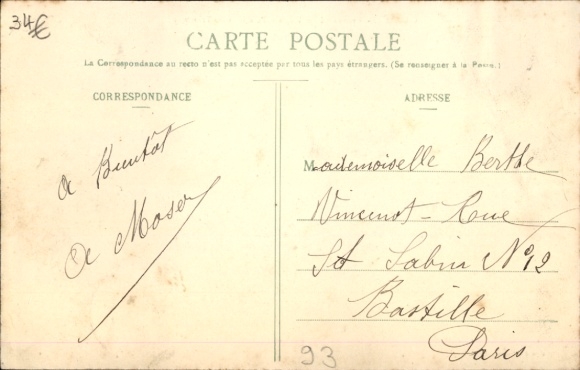 34€
CARTE POSTALE
La Correspondance au recto n'est pas acceptée par tous les pays étrangers. (Se renseigner à la Poste.)
CORRESPONDANCE
a Bientôt
a Moser
ADRESSE
Mademoiselle Berthe
Vincenot - Rue
St Sabin N° 12
Bastille
Paris
93